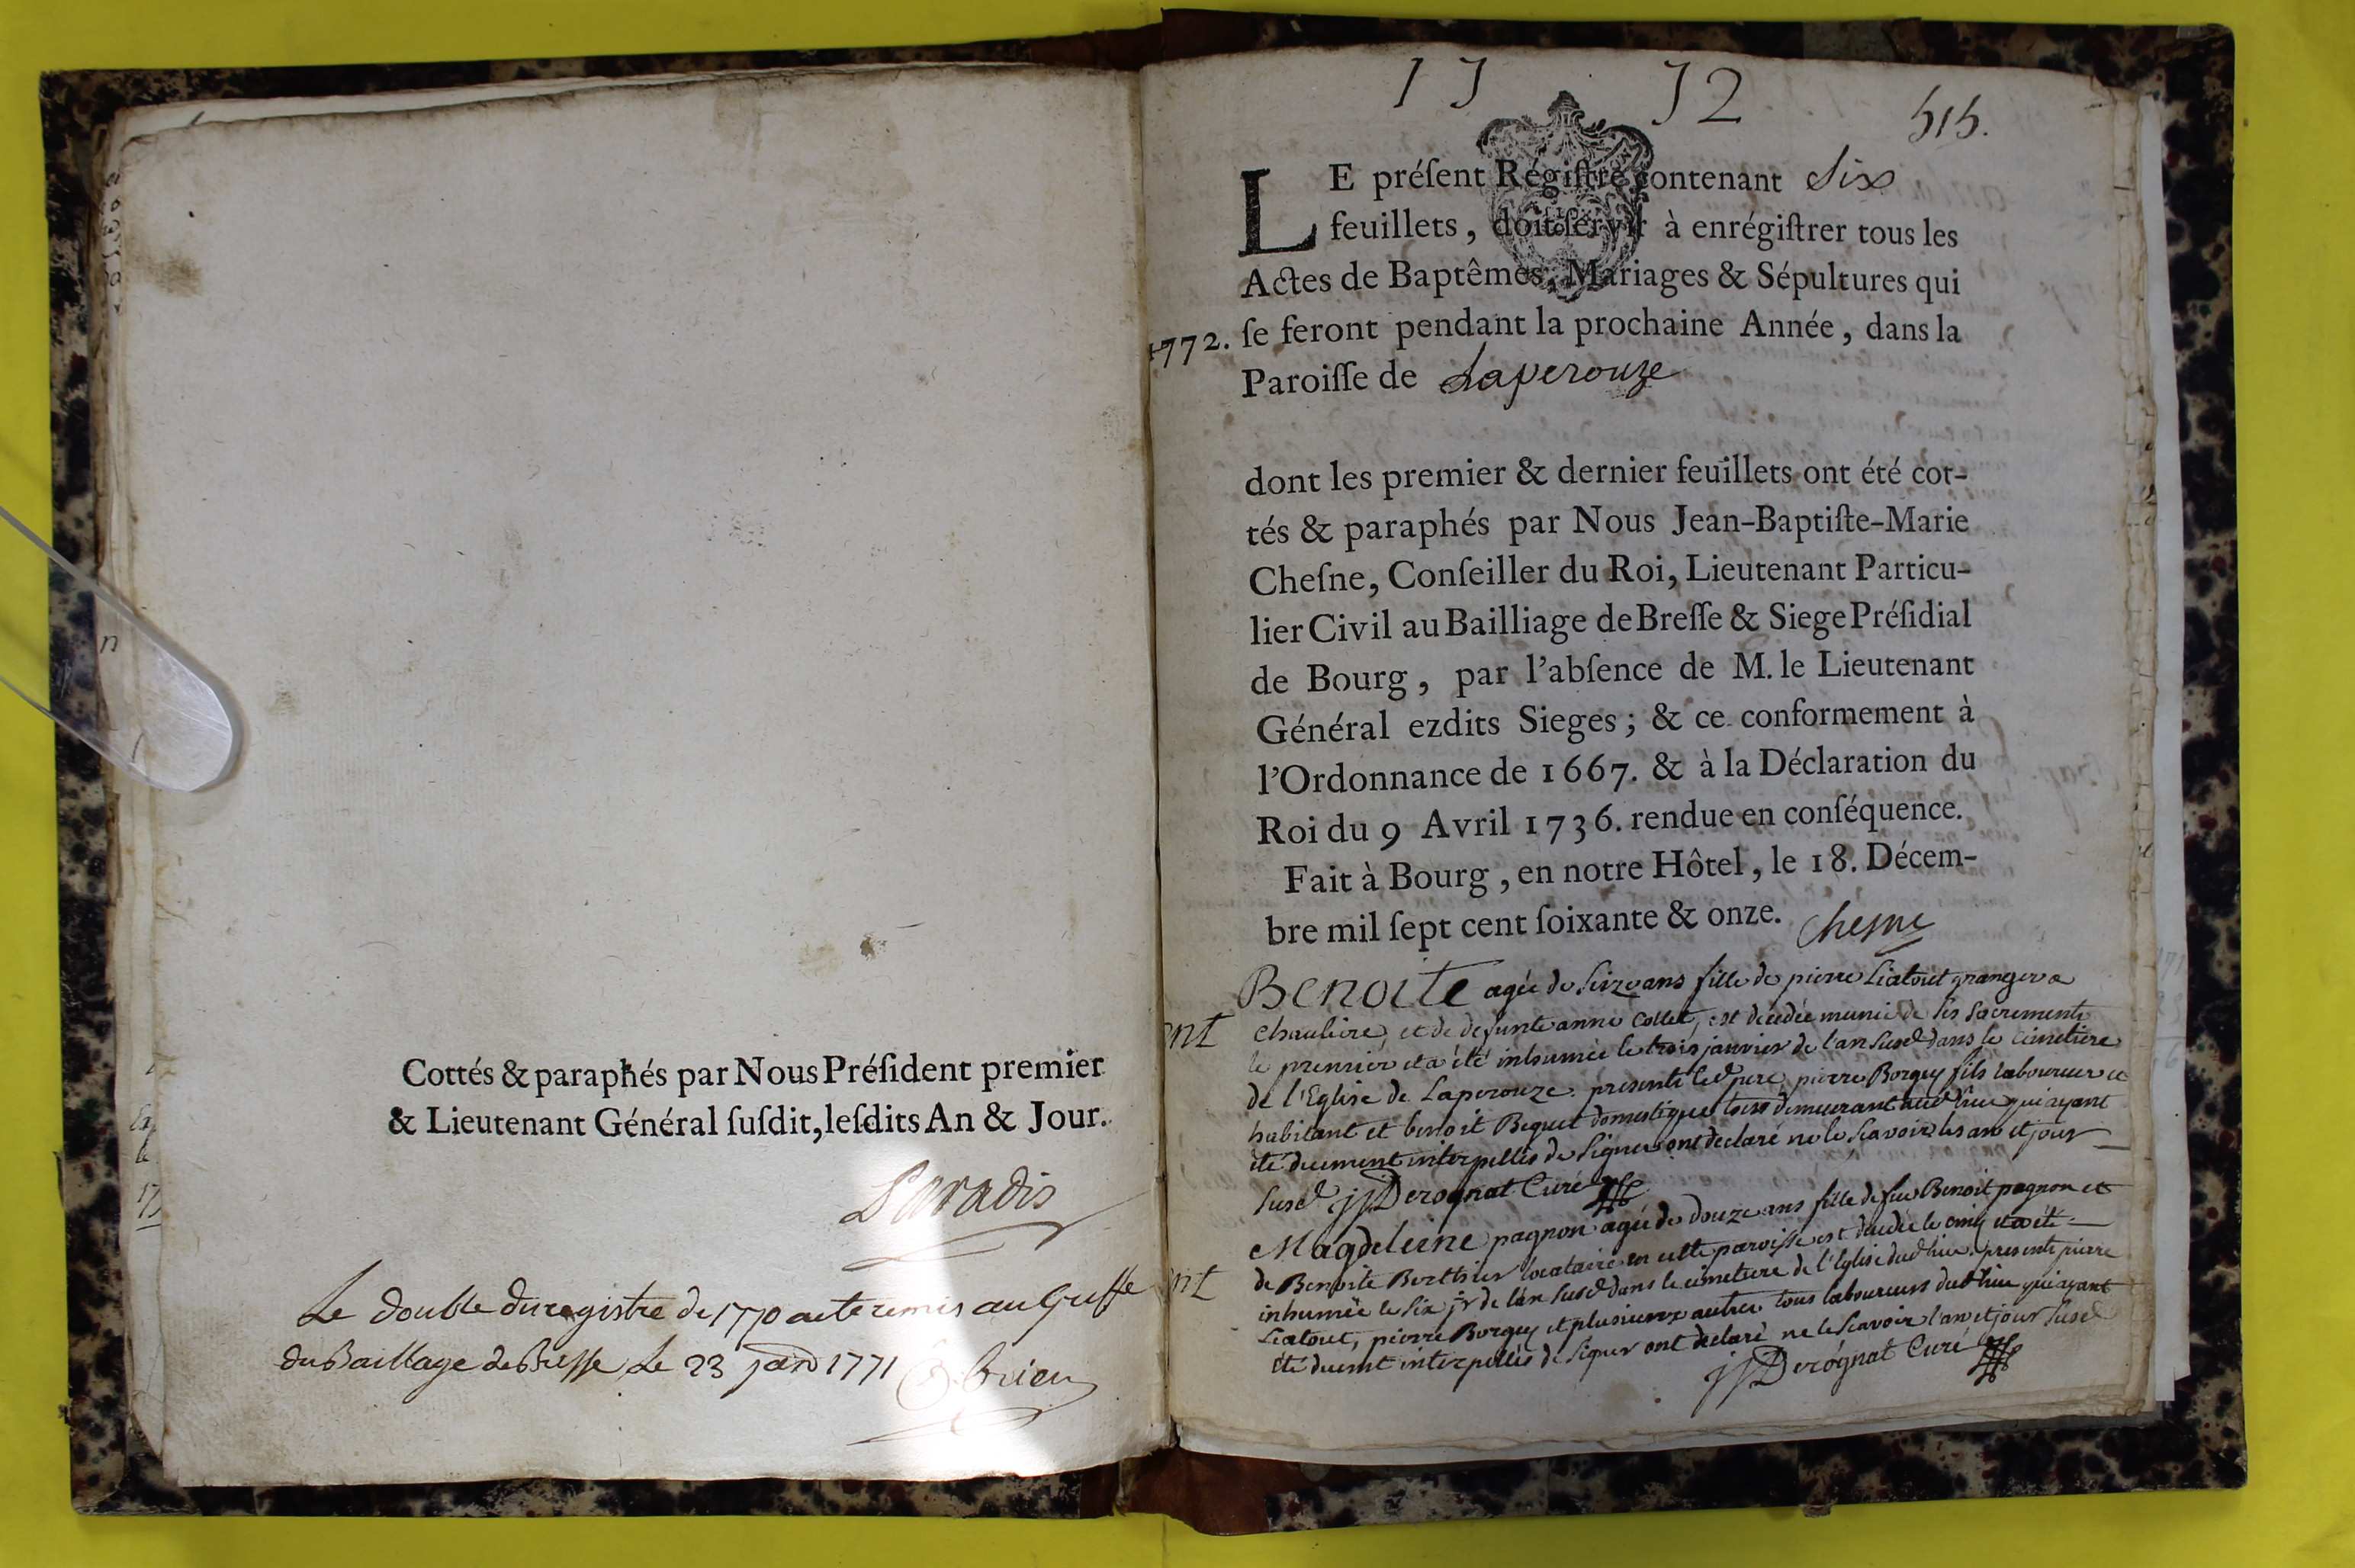 Cottés & paraphés par Nous Préſident premier
& Lieutenant Général ſuſdit, leſdits An & Jour.
Paradis
Le double du registre de 1770 a ete remis au Greffe
du Baillage de Bresse Le 23 janv 1771
17 72
515.
LE préſent Régiſtre contenant Six
feuillets, doit ſervir à enrégiſtrer tous les
Actes de Baptêmes, Mariages & Sépultures qui
1772. ſe feront pendant la prochaine Année, dans la
Paroiſſe de Laperouze
dont les premier & dernier feuillets ont été cot-
tés & paraphés par Nous Jean-Baptiſte-Marie
Cheſne, Conſeiller du Roi, Lieutenant Particu-
lier Civil au Bailliage de Breſſe & Siege Préſidial
de Bourg, par l'abſence de M. le Lieutenant
Général ezdits Sieges; & ce conformement à
l'Ordonnance de 1667. & à la Déclaration du
Roi du 9 Avril 1736. rendue en conſéquence.
Fait à Bourg, en notre Hôtel, le 18. Décem-
bre mil ſept cent ſoixante & onze. Chesne
Benoite agée de seize ans fille de pierre Liatout granger a
nt chauliere, et de defunte anne Collet, est decedée munie de ses sacrements
le premier et a été inhumée le trois janvier de l'an susd dans le cimetiere
de l'Eglise de Laperouze. presents led pere, pierre Borgey fils laboureur et
habitant et benoit Bequet domestique tous demeurant aud lieu qui ayant
été duement interpellés de signer ont declaré ne le scavoir les an et jour
susd jjDerognat Curé
Magdeleine pagnon agée de douze ans fille de feu Benoit pagnon et
nt de Benoite Berthier locataire en cette paroisse est decedée le cinq et a été
inhumée le six jr de l'an susd dans le cimetiere de l'Eglise dud lieu. presents pierre
Liatout, pierre Borgey et plusieurs autres tous laboureurs dud lieu qui ayant
été duemt interpellés de signer ont declaré ne le scavoir l'an et jour susd
jjDerognat Curé